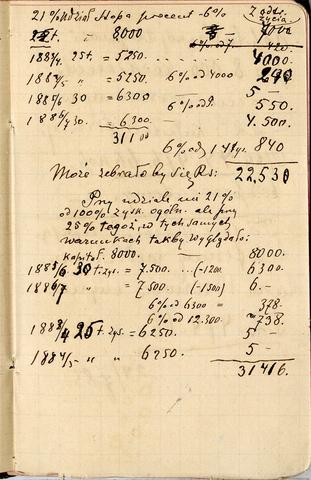 21% udział Stopa procent - 6% z odr. życia
25 t. 8000 7000
6% od 7. 420.
1883/4. 25t. = 5250. 4000.
1884/5 " = 5250. 6% od 4000 240
1885/6 30 = 6300 5 —
6% od 9. 550.
1886/7 30. = 6300. 4.500.
31100
6% od 14 tys. 840
Może zebrało by się Rs: 22,530
Przy udziale mi 21%
od 100% zysk. ogóln. ale przy
25% tegoż, w tych samych
warunkach takby wyglądało:
Kapitał. 8000. 8000.
1885/6 30 t. zys. = 7.500. ...(-1200. 6300.
1886/7 " = 7,500 (-1500) 6.—
6% od 6300 = 378.
6% od 12.300. = 738.
1883/4 25 t. zys. = 6250. 5 —
1884/5 " " 6250. 5 —
31416.